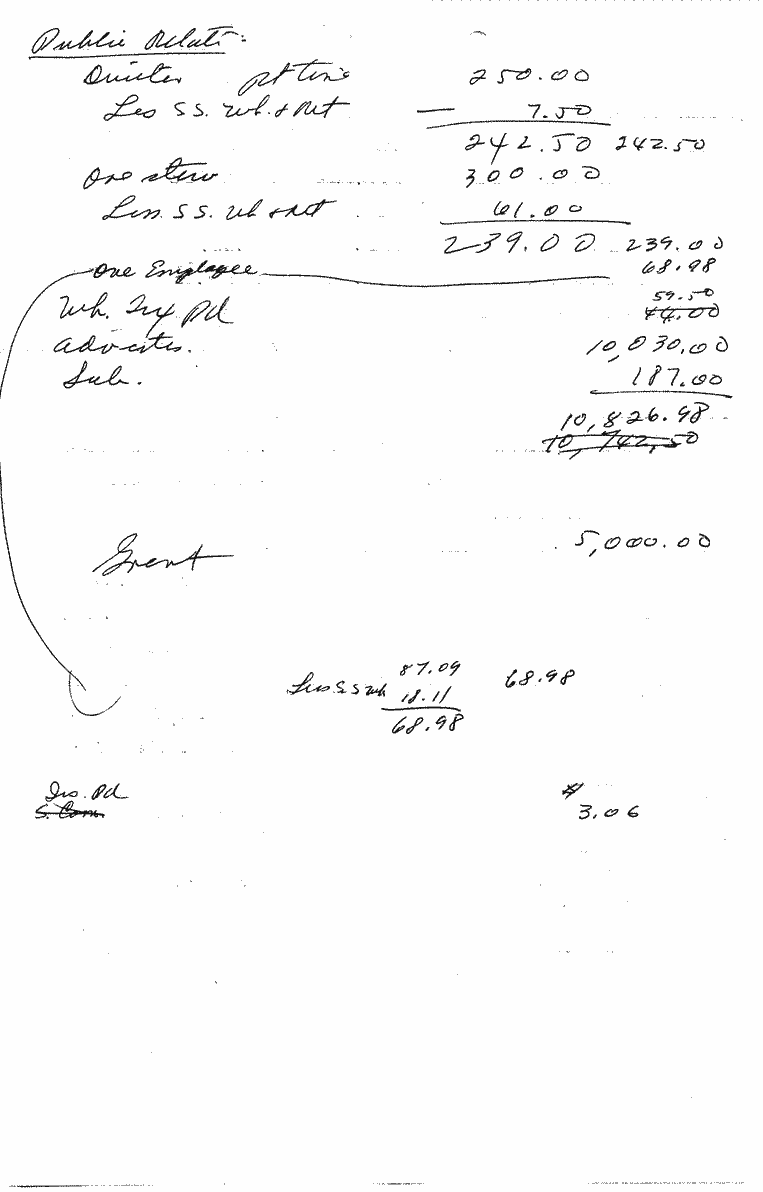 Public Relati:
Director pt time 250.00
Less S S. Wh. & Ret — 7.50
242.50 242.50
One steno 300.00
Less. S S. Wh & Ret 61.00
239.00 239.00
One Employee 68.98
59.50
Wh. Tax Pd 44.00
10,030.00
Sub. 187.00
10,826.98
10,742.50
Grant 5,000.00
87.09 68.98
Less S.S Wh 18.11
68.98
Ins. Pd #
S. Com. 3.06